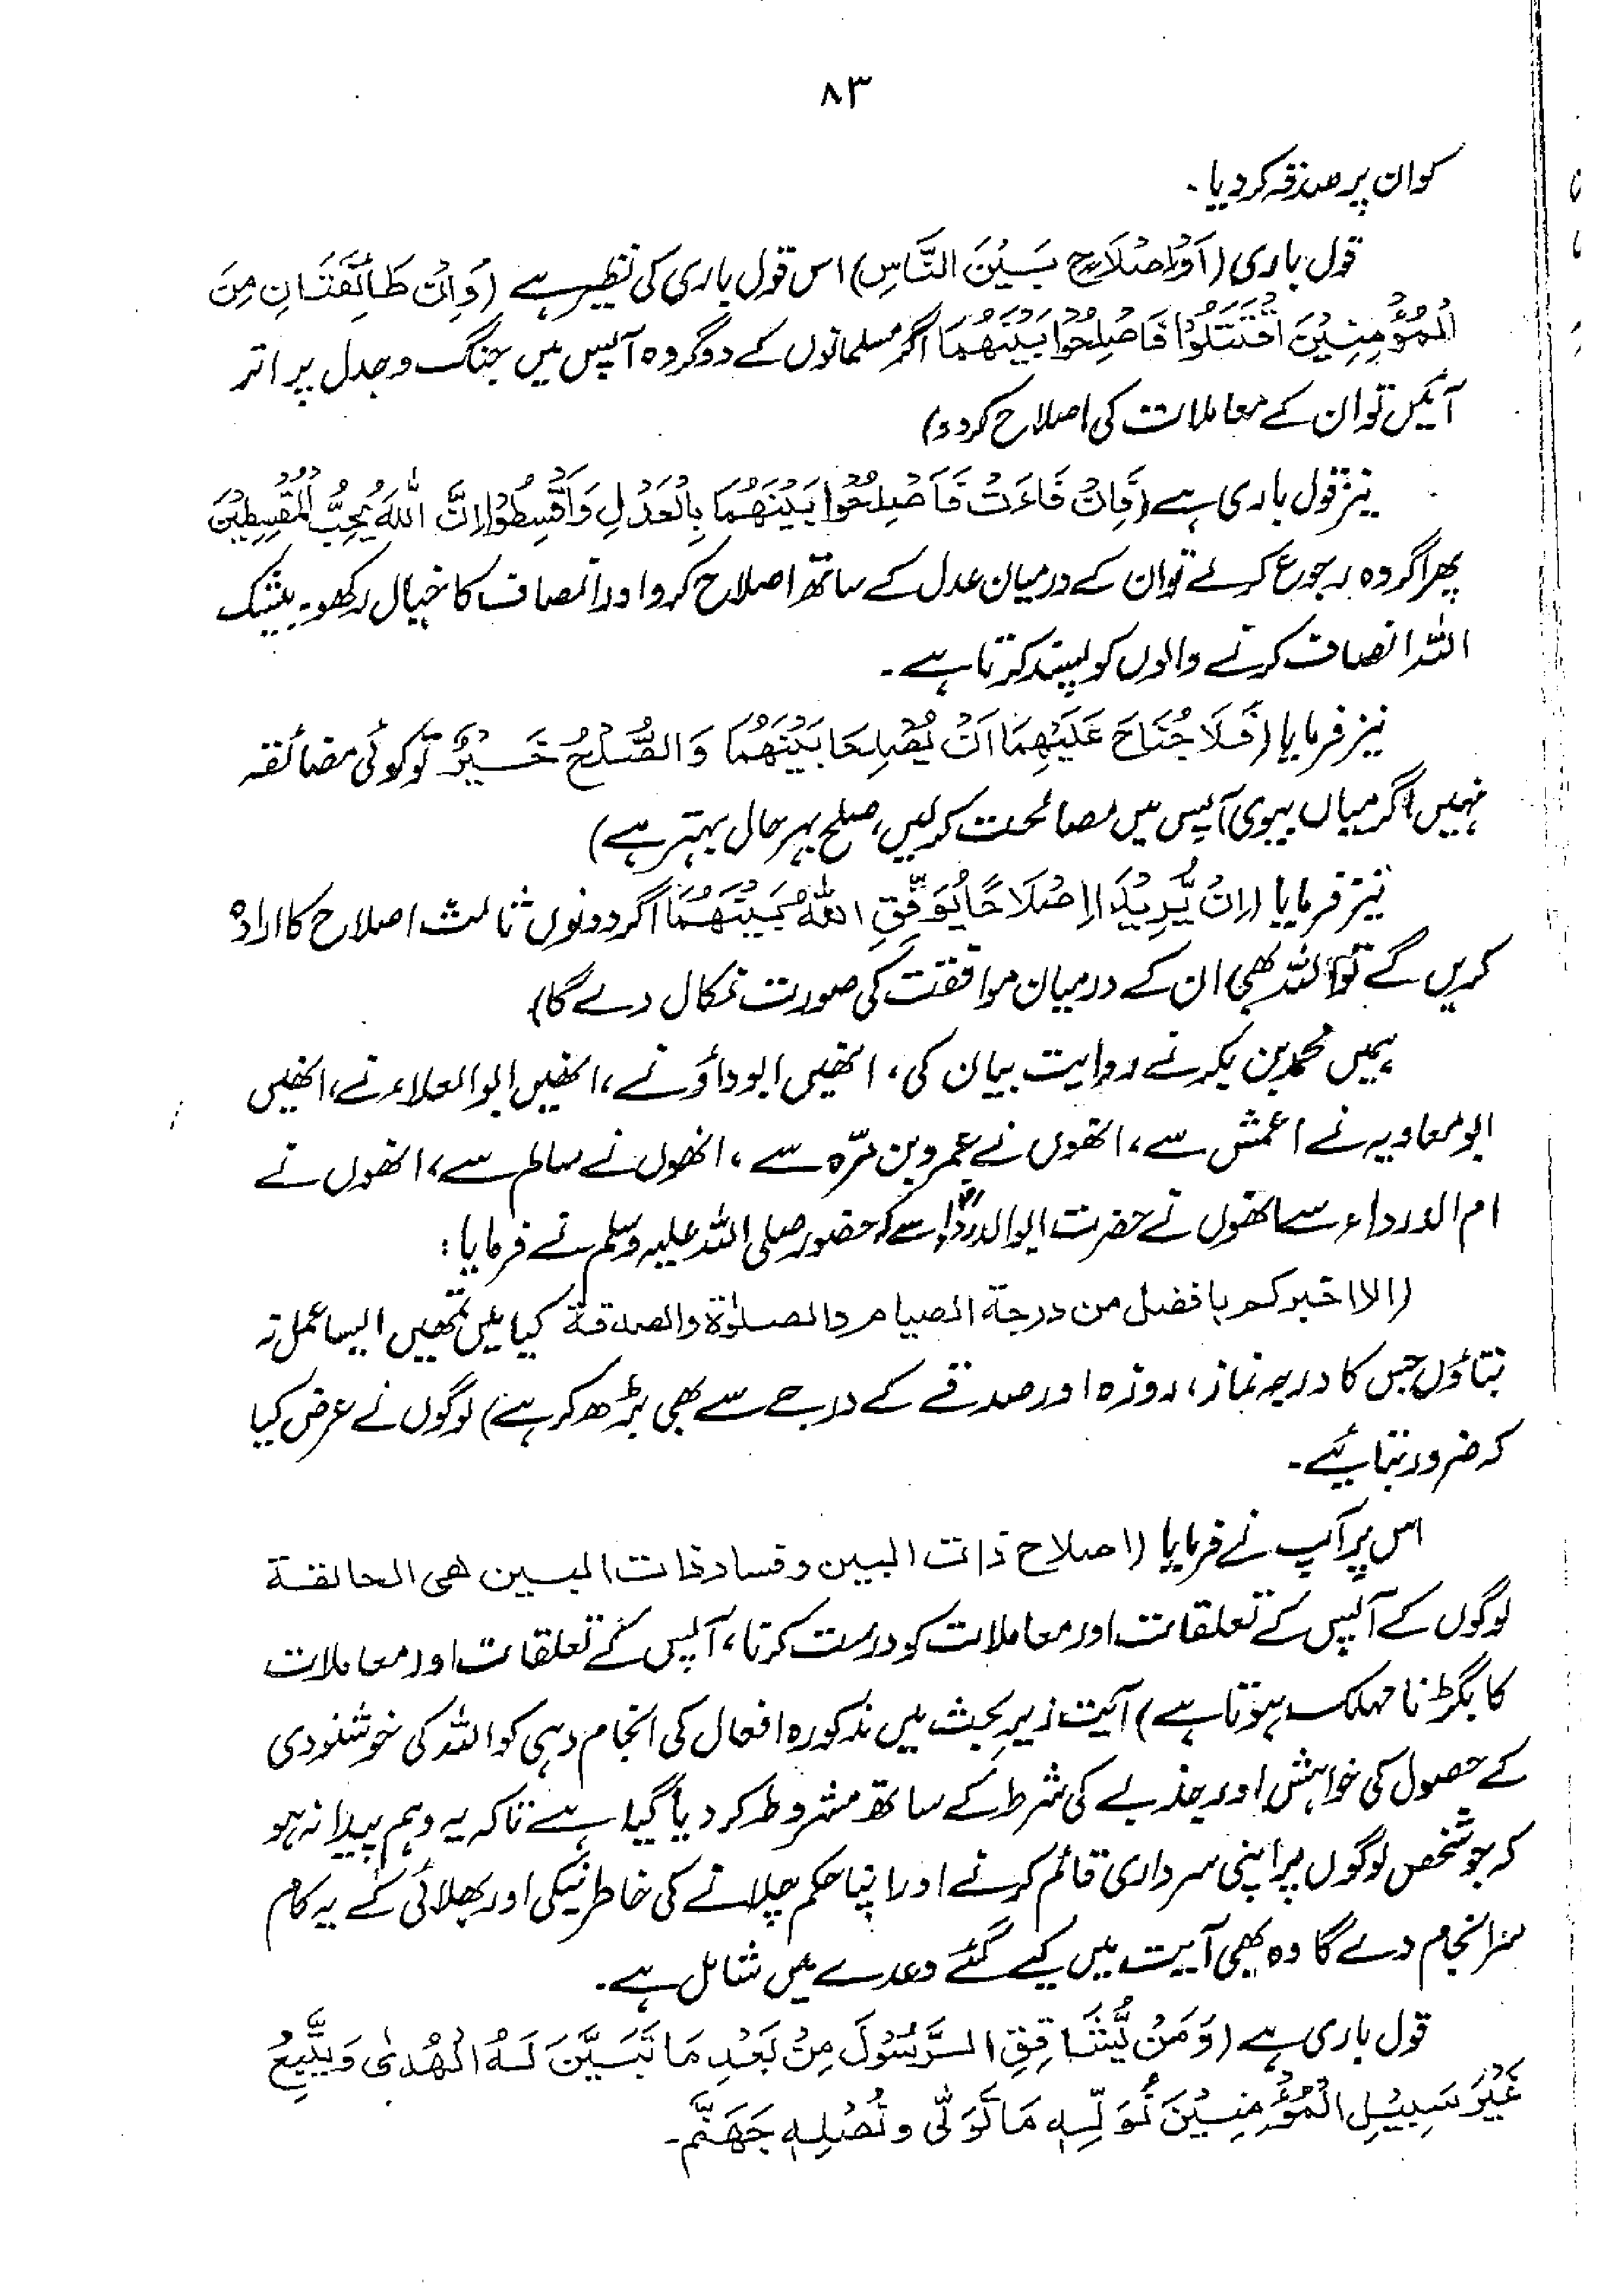 ۸۳
کو ان پر صدقہ کر دیا۔
قول باری (اَوْ اِصْلَاحٍ بَیْنَ النَّاسِ) اس قول باری کی نظیر ہے (وَاِنْ طَائِفَتَانِ مِنَ
الْمُؤْمِنِیْنَ اقْتَتَلُوْا فَاَصْلِحُوْا بَیْنَھُمَا اگر مسلمانوں کے دو گروہ آپس میں جنگ و جدل پر اتر
آئیں تو ان کے معاملات کی اصلاح کر دو)
نیز قول باری ہے (فَاِنْ فَاءَتْ فَاَصْلِحُوْا بَیْنَھُمَا بِالْعَدْلِ وَاَقْسِطُوْا اِنَّ اللّٰهَ یُحِبُّ الْمُقْسِطِیْنَ
پھر اگر وہ رجوع کرلے تو ان کے درمیان عدل کے ساتھ اصلاح کرو اور انصاف کا خیال رکھو۔ بیشک
اللہ انصاف کرنے والوں کو پسند کرتا ہے۔
نیز فرمایا (فَلَا جُنَاحَ عَلَیْھِمَا اَنْ یُّصْلِحَا بَیْنَھُمَا وَالصُّلْحُ خَیْرٌ تو کوئی مضائقہ
نہیں اگر میاں بیوی آپس میں مصالحت کر لیں، صلح بہر حال بہتر ہے)
نیز فرمایا (اِنْ یُّرِیْدَا اِصْلَاحًا یُوَفِّقِ اللّٰهُ بَیْنَھُمَا اگر دونوں ثالث اصلاح کا ارادہ
کریں گے تو اللہ بھی ان کے درمیان موافقت کی صورت نکال دے گا)
ہمیں محمد بن بکر نے روایت بیان کی، انھیں ابوداؤد نے، انھیں ابوالعلاء نے، انھیں
ابومعاویہ نے اعمش سے، انھوں نے عمرو بن مرّہ سے، انھوں نے سالم سے، انھوں نے
ام الدرداء سے انھوں نے حضرت ابوالدرداءؓ سے کہ حضور صلی اللہ علیہ وسلم نے فرمایا:
(الا اخبرکم بافضل من درجة الصیام والصلوٰة والصدقة کیا میں تمھیں ایسا عمل نہ
بتاؤں جس کا درجہ نماز، روزہ اور صدقے کے درجے سے بھی بڑھ کر ہے) لوگوں نے عرض کیا
کہ ضرور بتائیے۔
اس پر آپ نے فرمایا (اصلاح ذات البین وفساد ذات البین ھی الحالقة
لوگوں کے آپس کے تعلقات اور معاملات کو درست کرنا، آپس کے تعلقات اور معاملات
کا بگڑنا مہلک ہوتا ہے) آیت زیرِ بحث میں مذکورہ افعال کی انجام دہی کو اللہ کی خوشنودی
کے حصول کی خواہش اور جذبے کی شرط کے ساتھ مشروط کر دیا گیا ہے تاکہ یہ وہم پیدا نہ ہو
کہ جو شخص لوگوں پر اپنی سرداری قائم کرنے اور اپنا حکم چلانے کی خاطر نیکی اور بھلائی کے یہ کام
سرانجام دے گا وہ بھی آیت میں کیے گئے وعدے میں شامل ہے۔
قول باری ہے (وَمَنْ یُّشَاقِقِ الرَّسُوْلَ مِنْ بَعْدِ مَا تَبَیَّنَ لَهُ الْھُدٰی وَیَتَّبِعْ
غَیْرَ سَبِیْلِ الْمُؤْمِنِیْنَ نُوَلِّهٖ مَا تَوَلّٰی وَنُصْلِهٖ جَھَنَّمَ۔